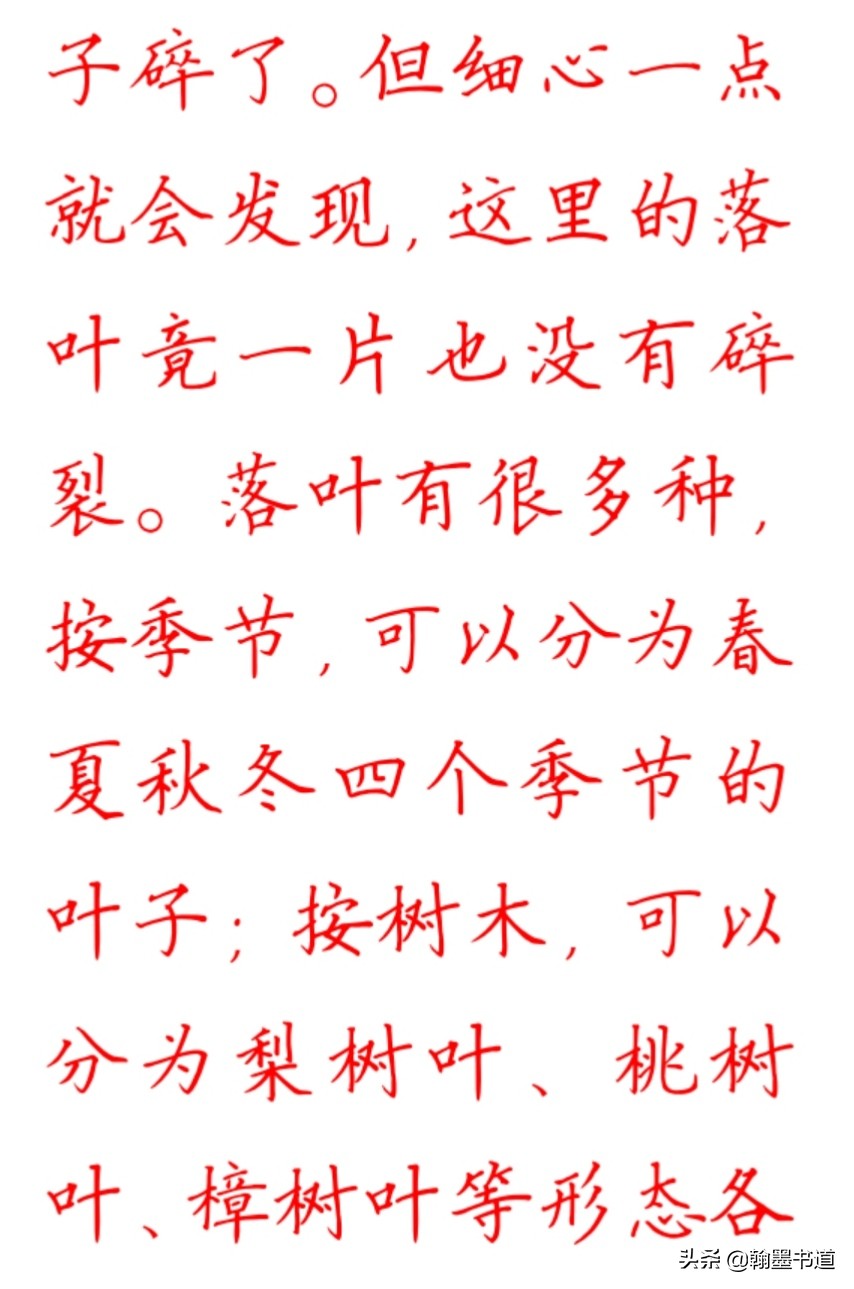 子碎了。但细心一点
就会发现,这里的落
叶竟一片也没有碎
裂。落叶有很多种,
按季节,可以分为春
夏秋冬四个季节的
叶子;按树木,可以
分为梨树叶、桃树
叶、樟树叶等形态各
头条 @翰墨书道